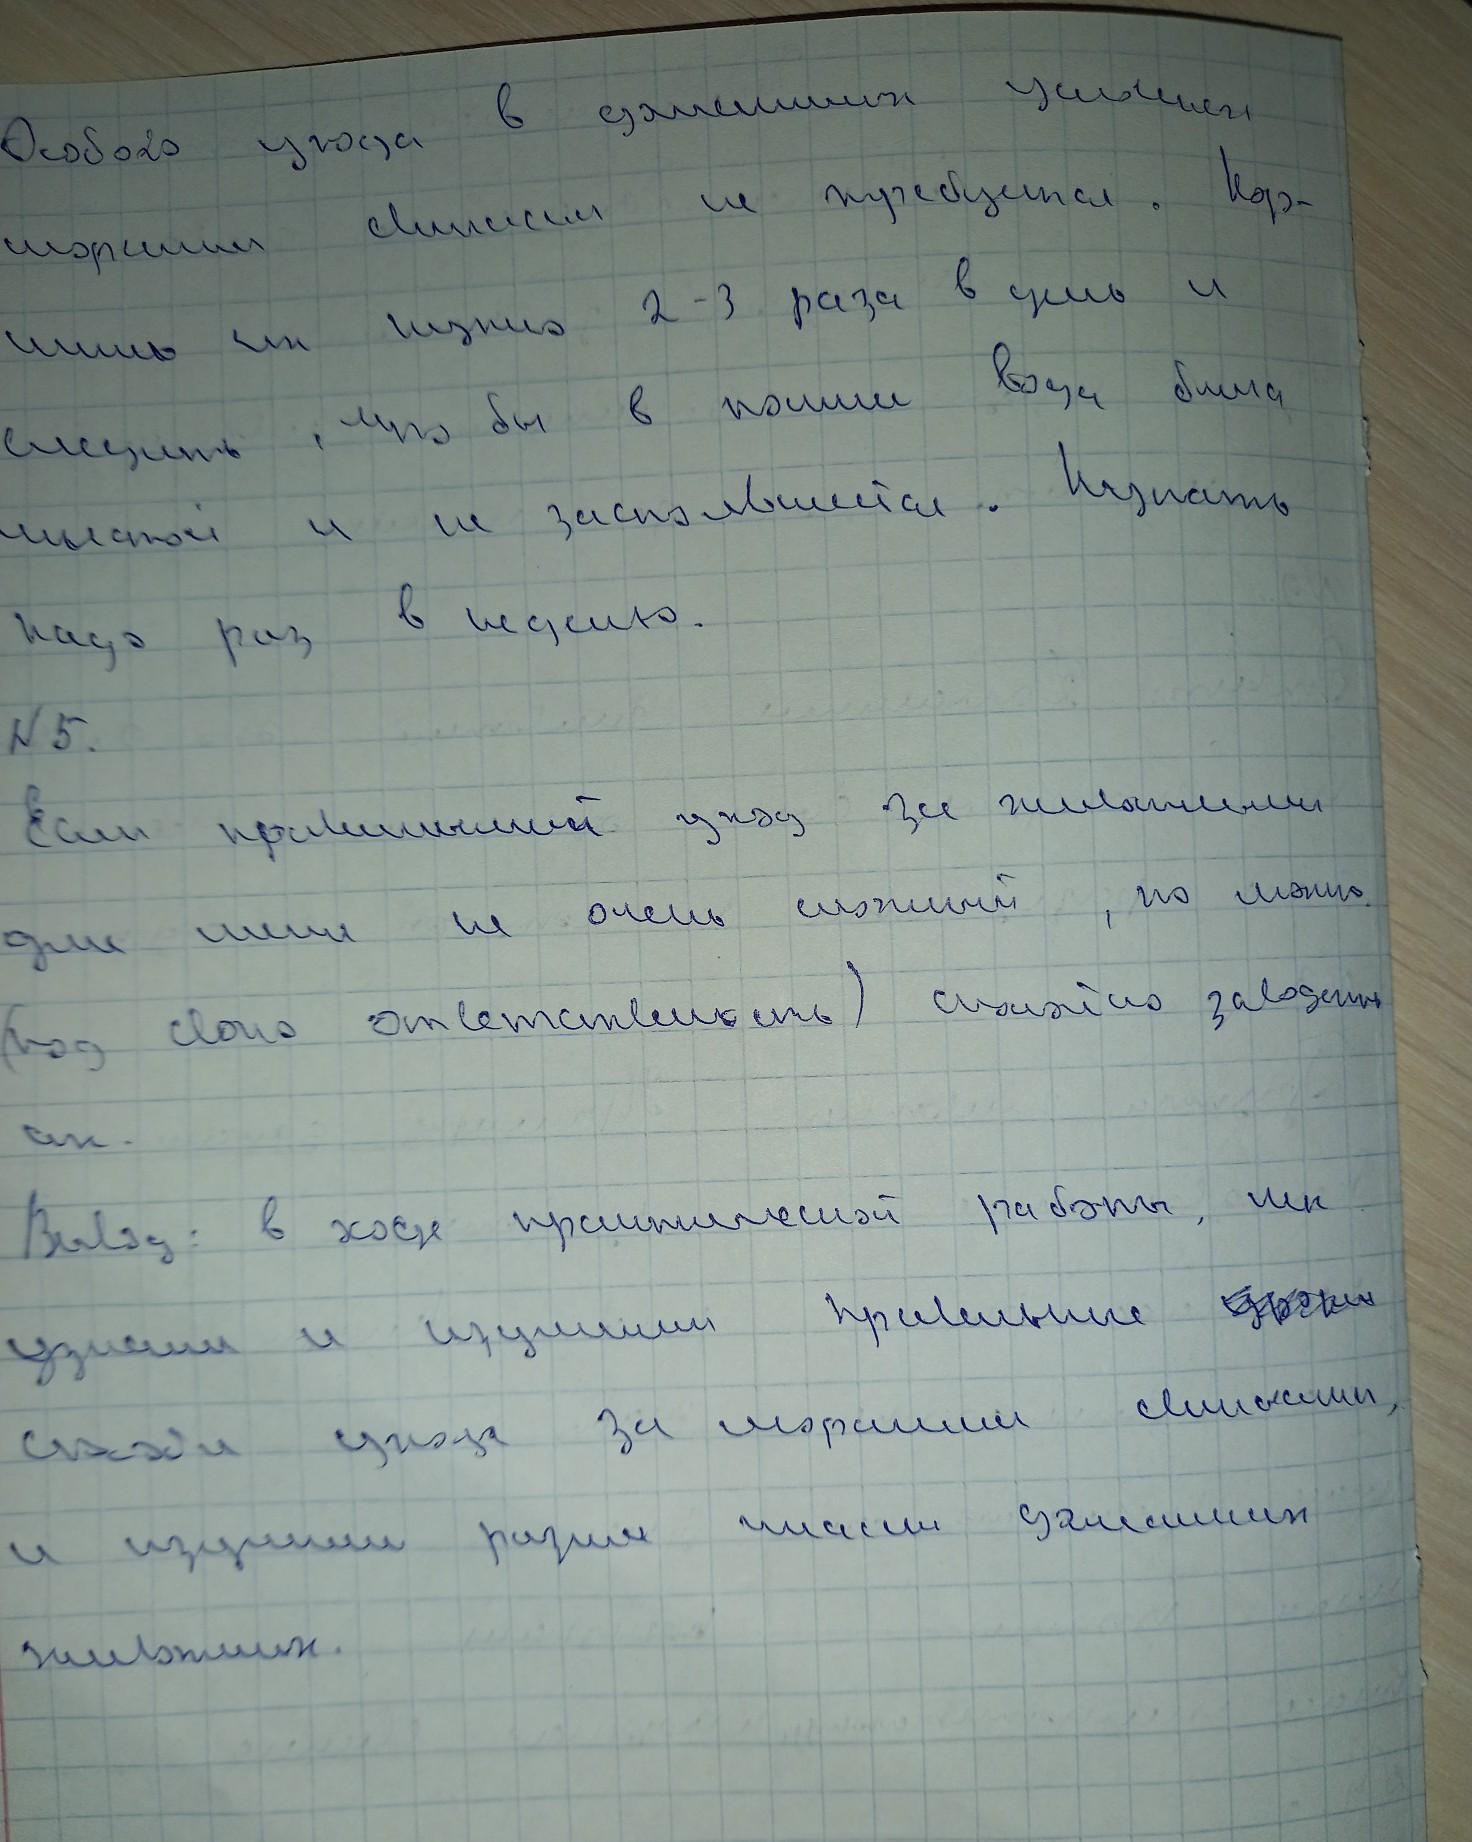 Особого ухода в домашних условиях
морским свинкам не требуется. Кор-
мить их нужно 2-3 раза в день и
следить, что бы в поилке вода была
чистой и не застоявшейся. Купать
надо раз в неделю.
N5.
Если правильный уход за животными
для меня не очень сложный, то можно
(под свою ответственность) спокойно заводить
их.
Вывод: в ходе практической работы, мы
узнали и изучили правильные
способы ухода за морскими свинками,
и изучили разные классы домашних
животных.